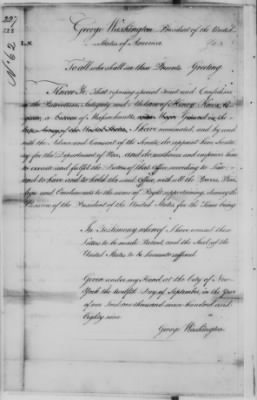 227
228
N° 62
L.S.
George Washington President of the United
States of America
To all who shall see these Presents Greeting
Know Ye That reposing special Trust and Confidence
in the Patriotism, Integrity and Abilities of Henry Knox Es
quire, a Citizen of Massachusetts,
of the United States, I have nominated, and by and
with the Advice and Consent of the Senate, do appoint him Secreta
ry for the Department of War, and do authorize and empower him
to execute and fulfil the Duties of that Office according to Law
and to have and to hold the said Office, with all the Powers, Privi
leges and Emoluments to the same of Right appertaining, during the
Pleasure of the President of the United States for the Time being
In Testimony whereof I have caused these
Letters to be made Patent, and the Seal of the
United States to be hereunto affixed
Given under my Hand at the City of New
York the twelfth Day of September, in the Year
of our Lord one thousand seven hundred and
Eighty nine
George Washington